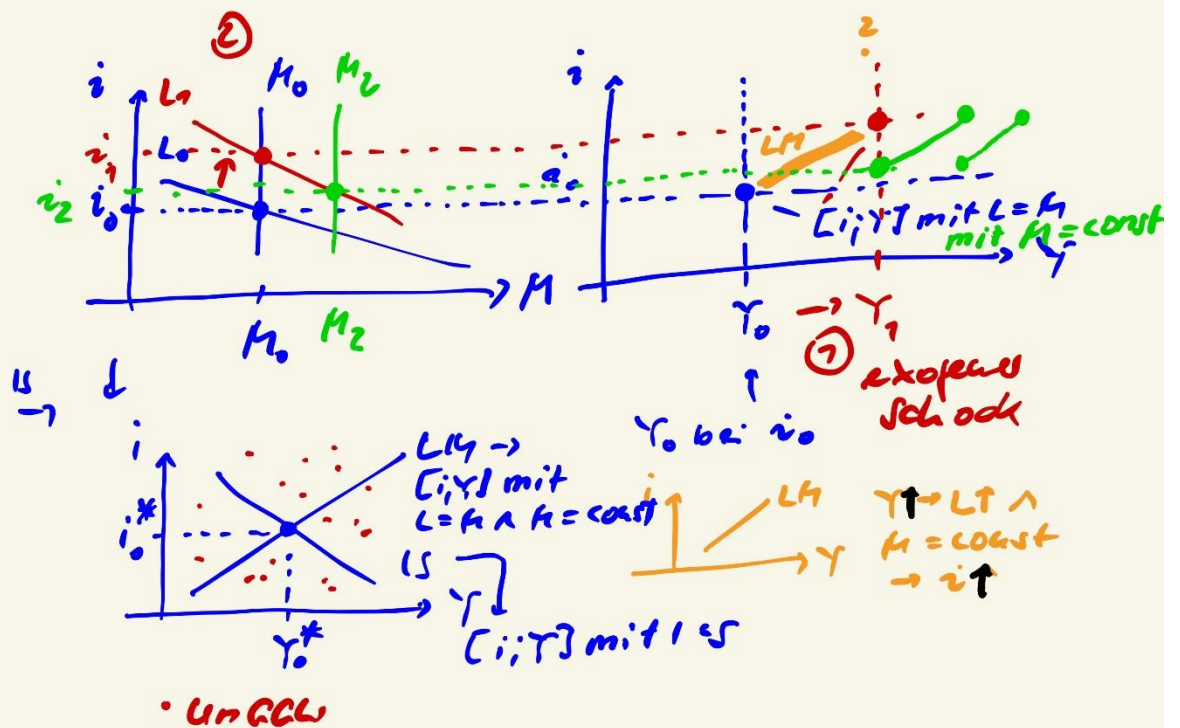 ②
i
L₁
M₀
M₂
i₁
L₀
i₂
i₀
M
M₀
M₂
i
2
LM
[i,Y] mit L=M
mit M=const
Y
Y₀ → Y₁
①
exogener
Schock
Y₀ bei i₀
IS
→
i
i₀*
Y₀*
Y
LM →
[i,Y] mit
L=M ∧ M=const
IS
[i;Y] mit I=S
i
LM
Y
Y↑ → L↑ ∧
M = const
→ i↑